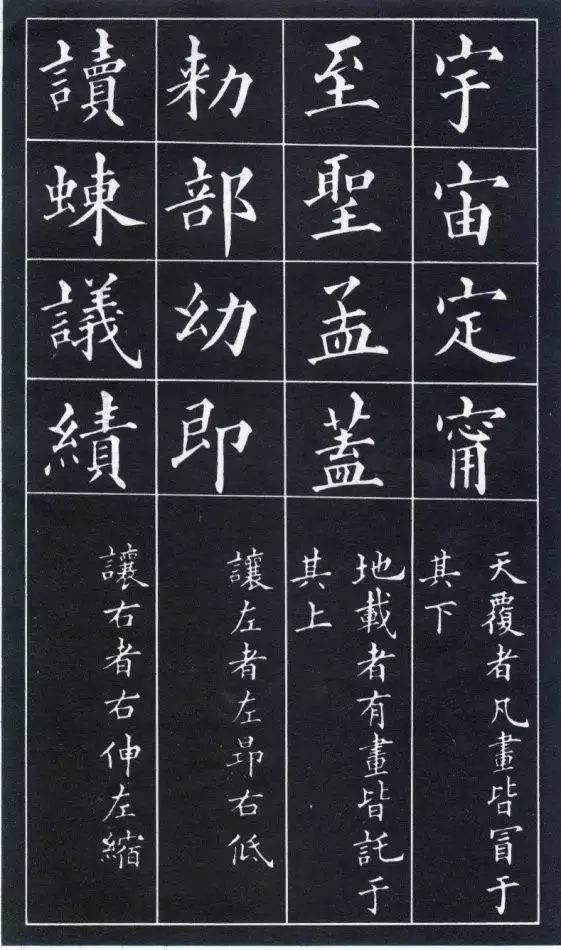 宇宙定甯
天覆者凡畫皆冒于
其下
至聖孟蓋
地載者有畫皆託于
其上
勑部幼即
讓左者左昂右低
讀蝀議績
讓右者右伸左縮